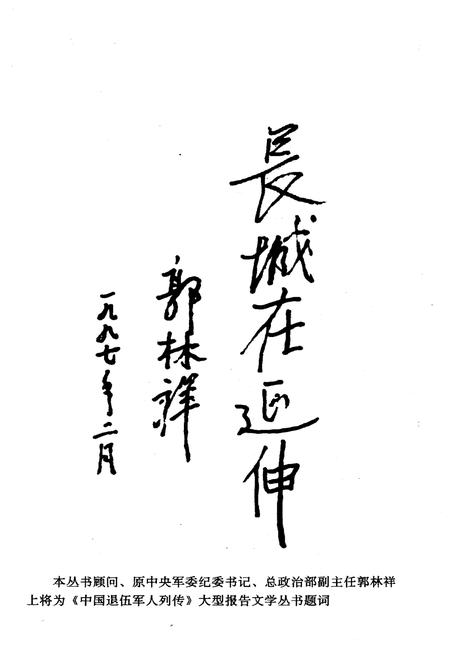 長城在延伸
郭林祥
一九九七年二月
本丛书顾问、原中央军委纪委书记、总政治部副主任郭林祥
上将为《中国退伍军人列传》大型报告文学丛书题词